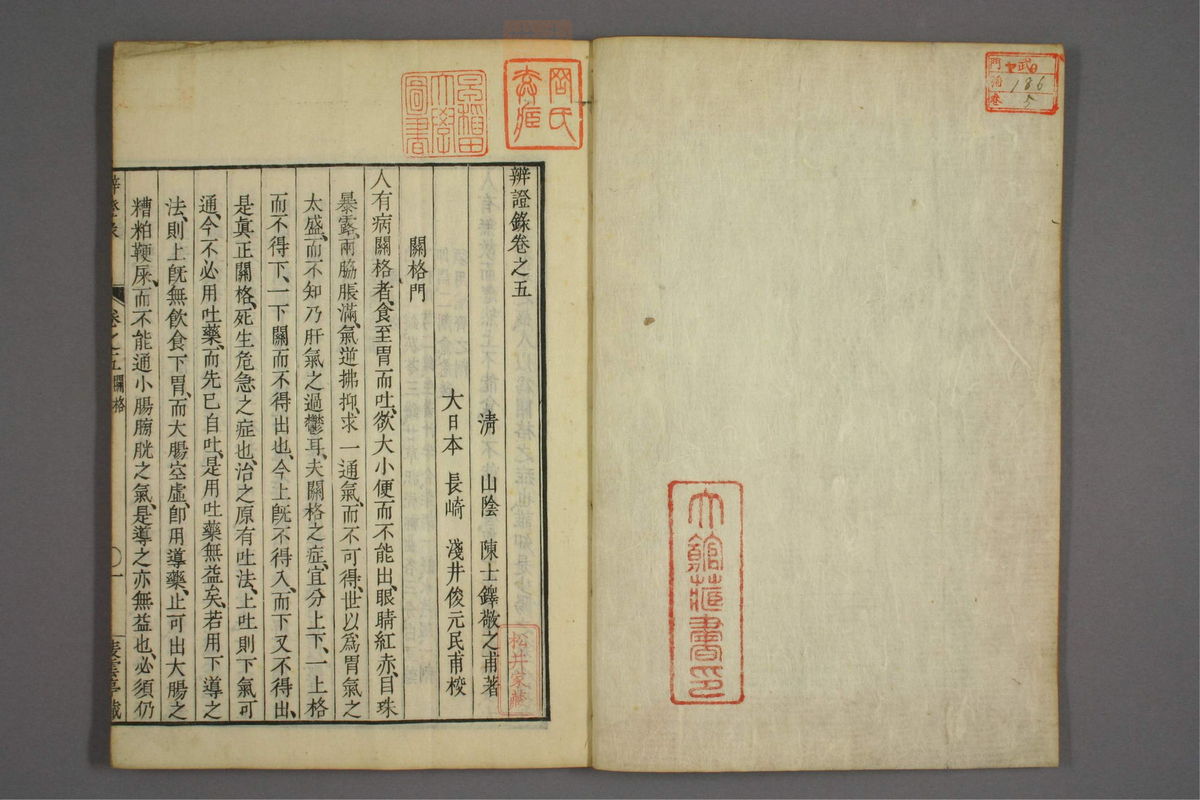 武
門
186
5
卷
大館莊書印
辨證錄卷之五
清 山陰 陳士鐸敬之甫著
大日本 長崎 淺井俊元民甫校
關格門
人有病關格者、食至胃而吐、欲大小便而不能出、眼睛紅赤、目珠
暴露、兩脇脹滿、氣逆拂抑、求一通氣、而不可得、世以爲胃氣之
太盛、而不知乃肝氣之過鬱耳、夫關格之症、宜分上下、一上格
而不得下、一下關而不得出也、今上旣不得入、而下又不得出、
是眞正關格、死生危急之症也、治之原有吐法、上吐則下氣可
通、今不必用吐藥、而先已自吐、是用吐藥無益矣、若用下導之
法、則上旣無飮食下胃、而大腸空虛、卽用導藥、止可出大腸之
糟粕鞕屎、而不能通小腸膀胱之氣、是導之亦無益也、必須仍
辨證錄
卷之五 關格
〇一
松井家藏
圖書